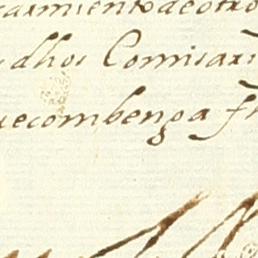 armiento de otro
dhos Comisari
recombenga